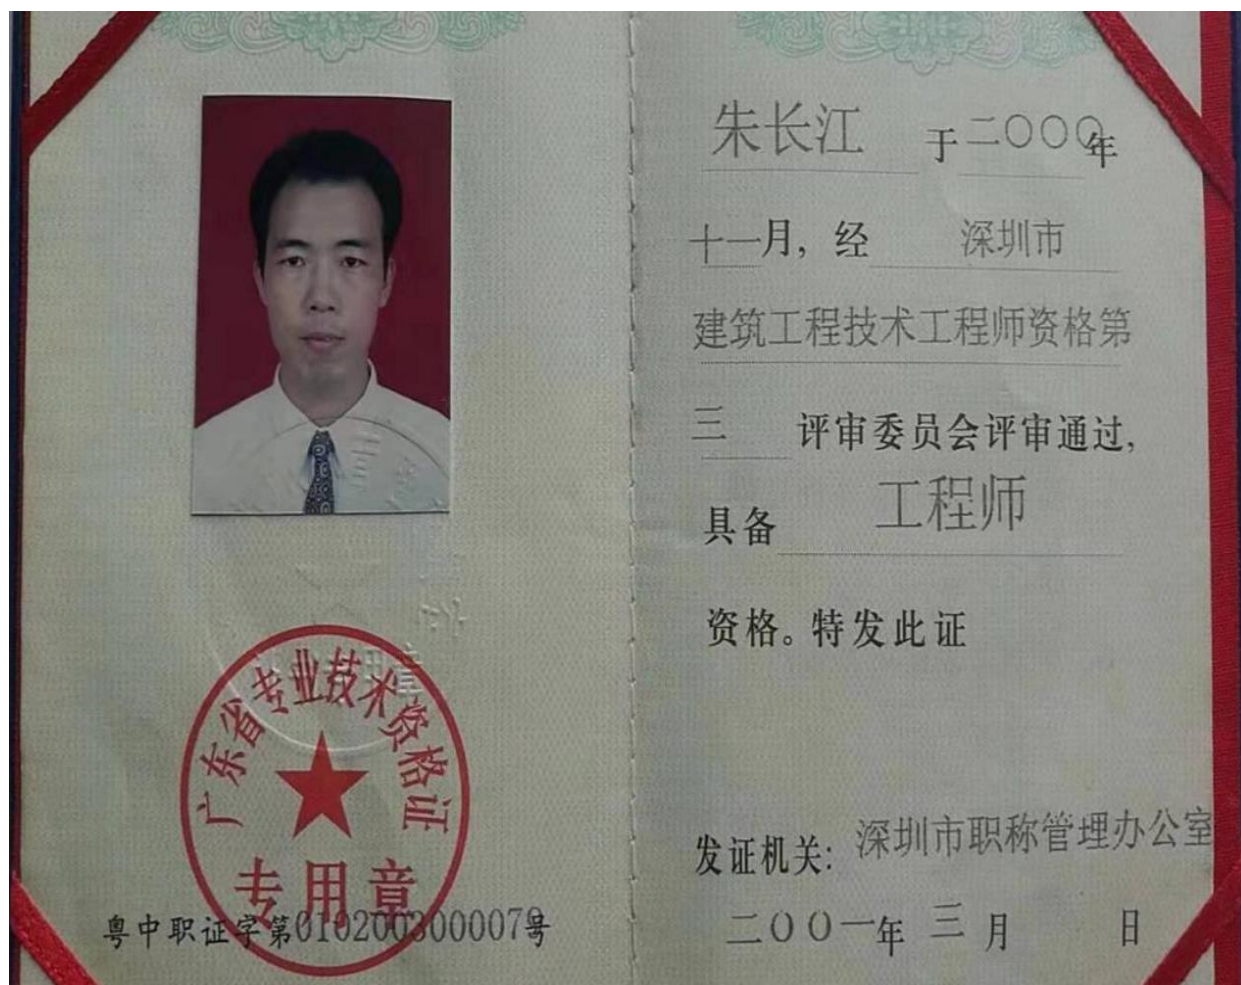 广东省专业技术资格证
专用章
粤中职证字第0102003000079号
朱长江 于二〇〇〇年
十一月，经 深圳市
建筑工程技术工程师资格第
三 评审委员会评审通过，
具备 工程师
资格。特发此证
发证机关：深圳市职称管理办公室
二〇〇一年 三月 日